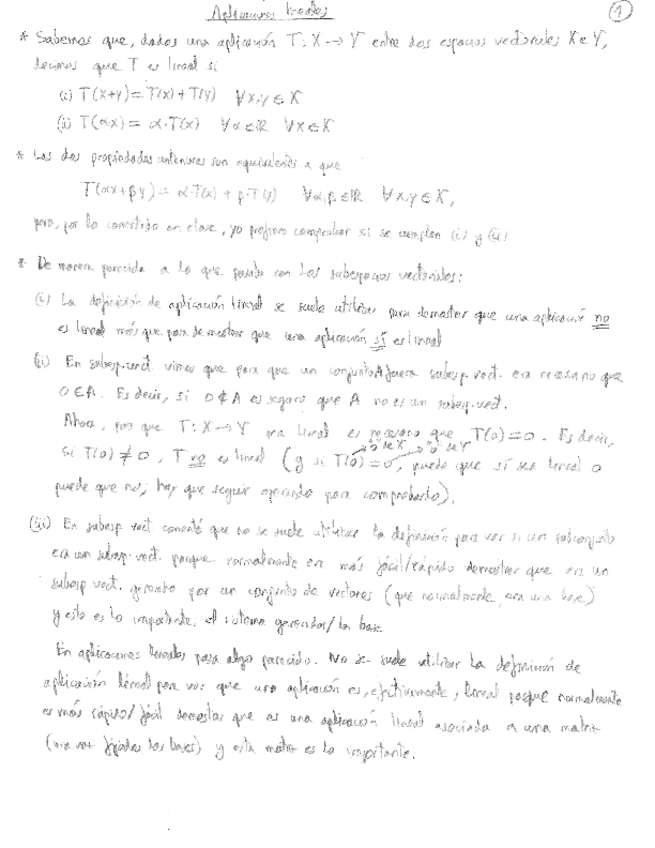 Aplicaciones lineales
1
* Sabemos que, dados una aplicación T: X → Y entre dos espacios vectoriales X e Y,
decimos que T es lineal si
(i) T(x+y) = T(x) + T(y) ∀x,y ∈ X
(ii) T(αx) = α·T(x) ∀α∈ℝ ∀x∈X
* Las dos propiedades anteriores son equivalentes a que
T(αx+βy) = α·T(x) + β·T(y) ∀α,β∈ℝ ∀x,y∈X,
pero, por lo comentado en clase, yo prefiero comprobar si se cumplen (i) y (ii)
* De manera parecida a lo que pasaba con los subespacios vectoriales:
(i) La definición de aplicación lineal se suele utilizar para demostrar que una aplicación no
es lineal más que para demostrar que una aplicación sí es lineal
(ii) En subesp. vect. vimos que para que un conjunto A fuera subesp. vect. era necesario que
0∈A. Es decir, si 0∉A es seguro que A no es un subesp. vect.
Ahora, para que T: X → Y sea lineal es necesario que T(0)=0. Es decir,
si T(0)≠0, T no es lineal (y si T(0)=0, puede que sí sea lineal o
"0" de X "0" de Y
puede que no; hay que seguir operando para comprobarlo).
(iii) En subesp. vect. comenté que no se suele utilizar la definición para ver si un subconjunto
era un subesp. vect. porque normalmente era más fácil/rápido demostrar que era un
subesp. vect. generado por un conjunto de vectores (que normalmente, era una base)
y esto es lo importante, el sistema generador/la base
En aplicaciones lineales pasa algo parecido. No se suele utilizar la definición de
aplicación lineal para ver que una aplicación es, efectivamente, lineal porque normalmente
es más rápido/fácil demostrar que es una aplicación lineal asociada a una matriz
(una vez fijadas las bases) y esta matriz es lo importante.